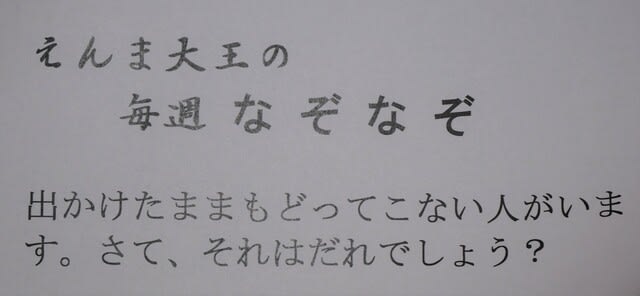 えんま大王の
毎週なぞなぞ
出かけたままもどってこない人がいま
す。さて、それはだれでしょう？